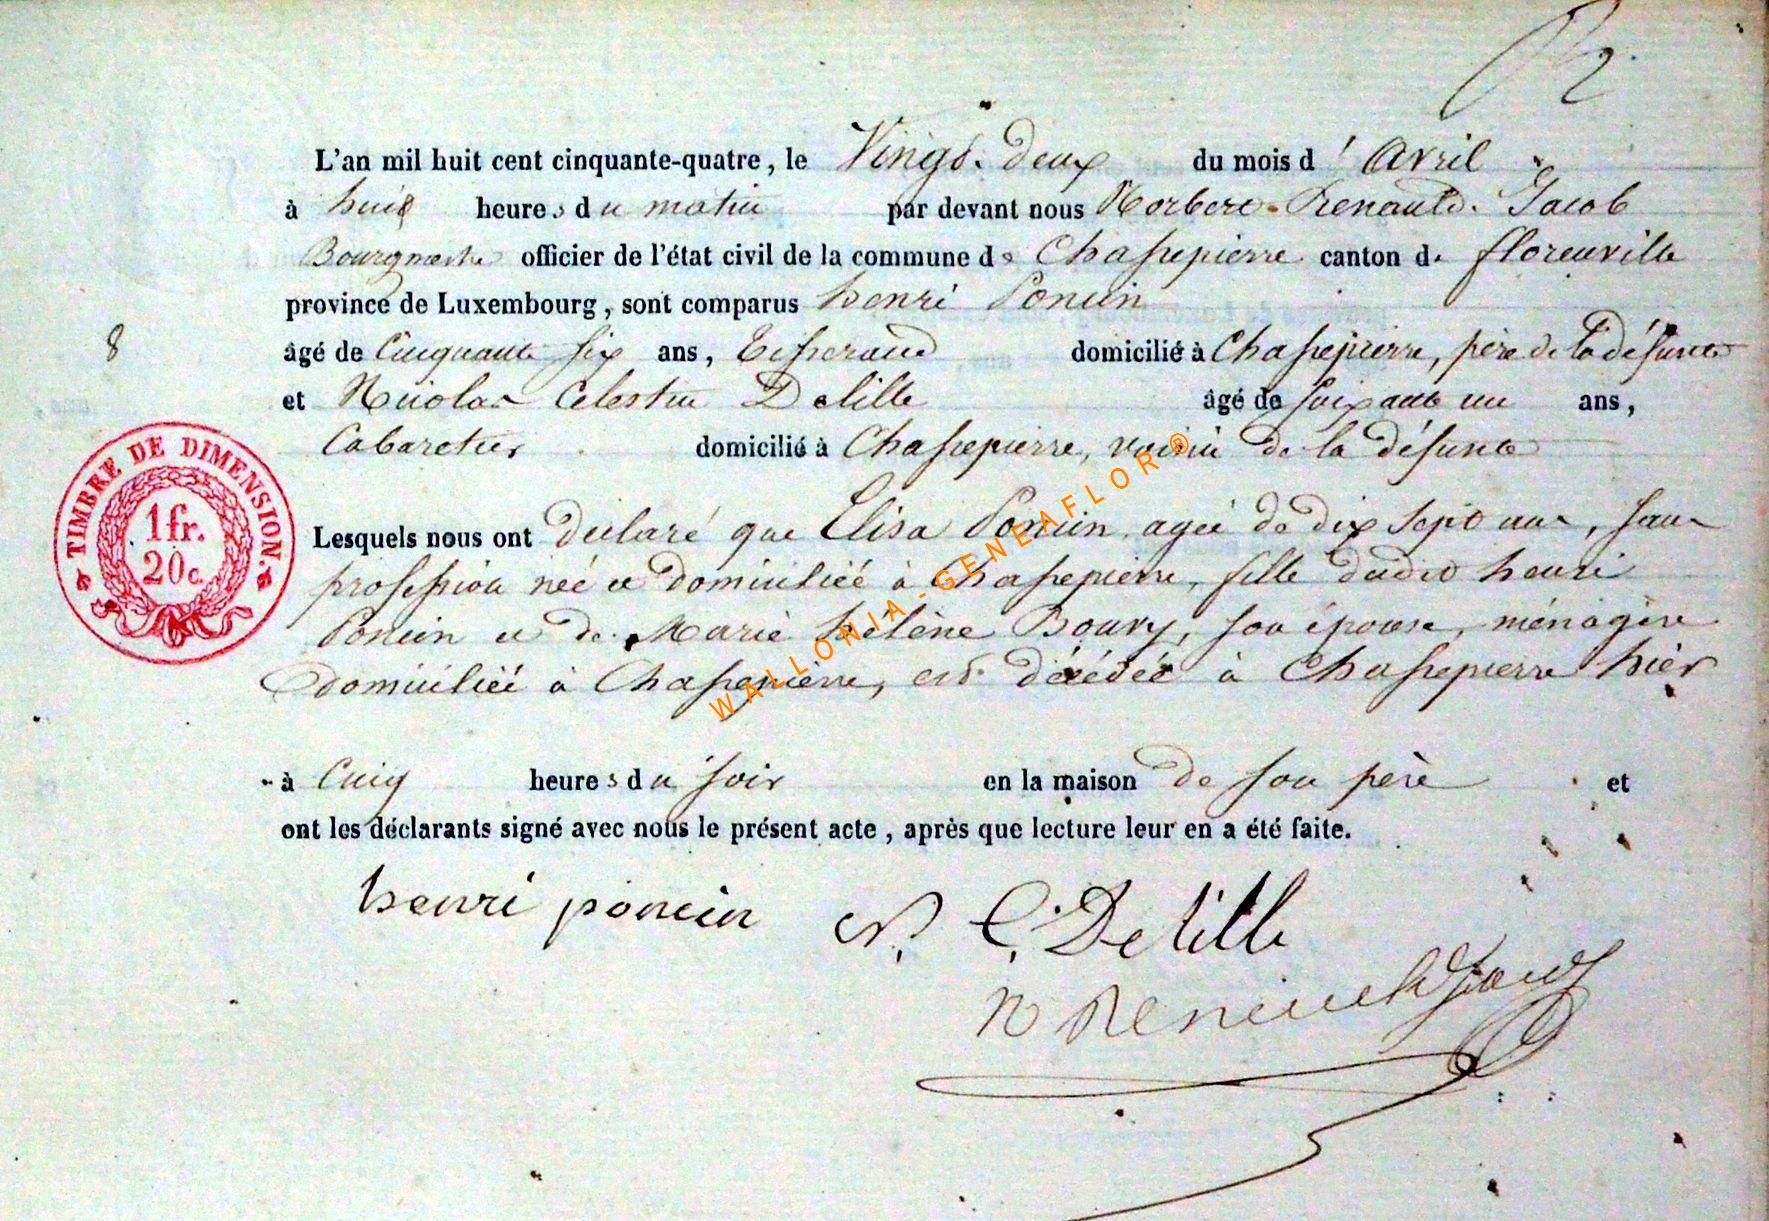 L'an mil huit cent cinquante-quatre, le Vingt-deux du mois d'Avril
à huit heures du matin par devant nous Norbert-Renauld-Jacob
Bourgmestre officier de l'état civil de la commune de Chassepierre canton de florenville
province de Luxembourg, sont comparus henri Poncin
8
âgé de Cinquante six ans, domicilié à Chassepierre, père de la défunte
et Nicolas Celestin Delille âgé de soixante un ans,
Cabaretier domicilié à Chassepierre, voisin de la défunte
TIMBRE DE DIMENSION.
1fr.
20c.
Lesquels nous ont déclaré que Elisa Poncin, agée de dix sept ans, sans
profession née et domiciliée à Chassepierre, fille dudit henri
Poncin et de Marie hélène Boury, son épouse, ménagère
domiciliée à Chassepierre, est décédée à Chassepierre hier
à cinq heures du soir en la maison de son père et
ont les déclarants signé avec nous le présent acte, après que lecture leur en a été faite.
henri poncin N. C. Delille
N Renauld Jacob
WALLONIA-GENEAFLOR®